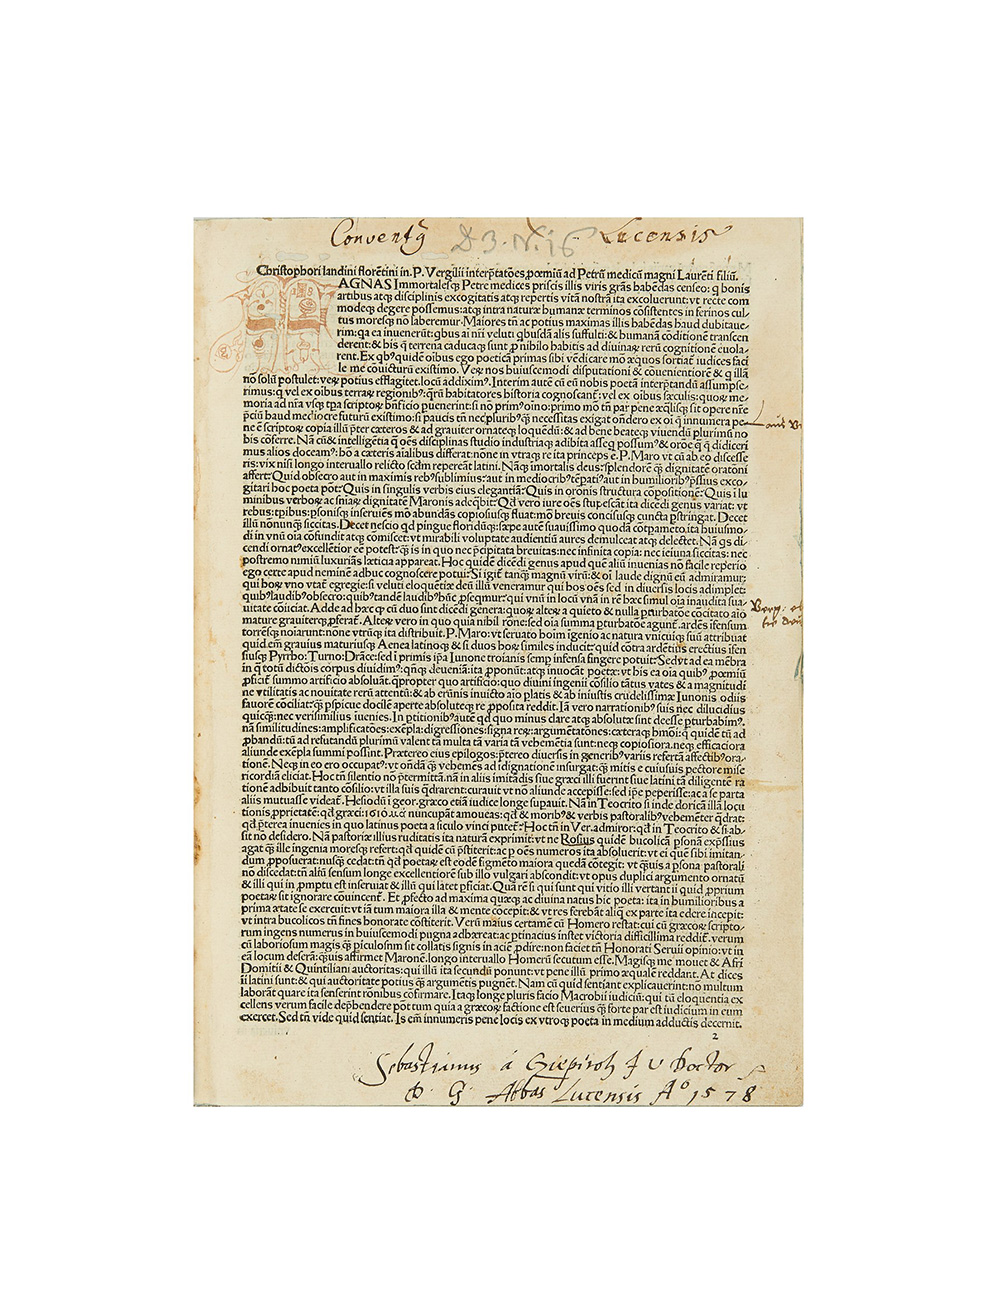 Conventꝰ D3. N. 16 Lucensis
Christophori landini florētini in. P. Vergilii interp̄tatōes, ꝓœmiū ad Petrū medicū magni Laurēti filiū.
MAGNAS Immortalesqꝫ Petre medices priscis illis viris grās habendas censeo: q bonis
artibus atqꝫ disciplinis excogitatis atqꝫ repertis vitā nostrā ita excoluerunt: vt recte com
modeqꝫ degere possemus: atqꝫ intra naturæ humanæ terminos cōsistentes in ferinos cul-
tus moresqꝫ nō laberemur. Maiores tn̄ ac potius maximas illis habēdas haud dubitaue-
rim: qa ea inuenerūt: qbus ai nr̄i veluti qbusdā alis suffulti: & humanā cōditionē transcen
derent: & his q̄ terrena caducaqꝫ sunt ꝓ nihilo habitis ad diuinaꝝ rerū cognitionē euola-
rent. Ex qbꝰ quidē oibus ego poeticā primas sibi vēdicare mō æquos sortiat̄ iudices faci
le me cōuicturū existimo. Veꝝ nos huiuscemodi disputationi & cōuenientiorē & q illā
nō solū postulet: veꝝ potius efflagitet. locū addiximꝰ. Interim autē cū eū nobis poetā interp̄tandū assumpse-
rimus: q vel ex oibus terraꝝ regionibꝰ: qrū habitatores historia cognoscant̄: vel ex oibus sæculis: quoꝝ me-
moria ad nr̄a vsqꝫ tp̄a scriptoꝝ bn̄ficio puenerit: si nō primꝰ oino: primo mō tn̄ par pene æqlisqꝫ sit opere nr̄e
p̄ciū haud mediocre futurū existimo: si paucis tn̄ nec pluribꝰ q̄ necessitas exigat on̄dero ex oi q innumera pe-
ne ē scriptoꝝ copia illū p̄ter cæteros & ad grauiter ornateqꝫ loquēdū: & ad bene beateqꝫ viuendū plurimū no
bis cōferre. Nā cū & intelligētia q̄ oēs disciplinas studio industriaqꝫ adhibita assequi possumꝰ & orōe q̄ q̄ didiceri
mus alios doceamꝰ: hō a cæteris aialibus differat: nōne in vtraqꝫ re ita princeps ē. P. Maro vt cū ab eo discesse
ris: vix nisi longo interuallo relicto scdm̄ reperēat latini. Nāqꝫ imortalis deus: splendorē q̄ dignitatē orationi
affert: Quid obsecro aut in maximis rebꝰ sublimius: aut in mediocribꝰ tēpati
gitari hoc poeta pōt: Quis in singulis verbis eius elegantiā: Quis in orōnis structura cōpositionē: Quis i lu
minibus verboꝝ ac sniaꝝ dignitatē Maronis adeqbit: Qd vero iure oēs stupescāt ita dicēdi genus variat: vt
rebus: tpibus: psonisqꝫ inseruiēs mō abundās copiosusqꝫ fluat: mō breuis concisusqꝫ cuncta p̄stringat. Decet
illū nōnunq̄ siccitas. Decet nescio qd pingue floridūqꝫ: sæpe autē suauissimo quodā cōtpamēto ita huiusmo-
di in vnū oia cōfundit atqꝫ cōmiscet: vt mirabili voluptate audientiū aures demulceat atqꝫ delectet. Nā qs di
cendi ornatꝰ excellētior eē potest: q̄ is in quo nec p̄cipitata breuitas: nec infinita copia: nec ieiuna siccitas: nec
postremo nimiū luxuriās læticia appareat. Hoc quidē dicēdi genus apud quē aliū inuenias nō facile reperio
ego certe apud neminē adhuc cognoscere potui: Si igit̄ tanq̄ magnū virū: & oi laude dignū eū admiramur:
qui hoꝝ vno vtat̄ egregie: si veluti eloquētiæ deū illū veneramur qui hos oēs sed in diuersis locis adimplet:
quibꝰ laudibꝰ obsecro: quibꝰ tandē laudibꝰ hūc ꝓseqmur: qui vnū in locū vnā in rē hæc simul oia inaudita sua-
uitate cōiiciat. Adde ad hæc qꝫ cū duo sint dicēdi genera: quoꝝ alteꝝ a quieto & nulla pturbatōe cōcitato aio
mature grauiterqꝫ ꝓferat̄. Alteꝝ vero in quo quia nihil rōne: sed oia summa pturbatōe agunt̄. ardēs ifensum
torrēsqꝫ noiarunt: none vtrūqꝫ ita distribuit. P. Maro: vt seruato hoim igenio ac natura vnicuiqꝫ suū attribuat
quid em̄ grauius maturiusqꝫ Aenea latinoqꝫ & si duos hoꝝ similes inducit: quid cōtra ardētius erectius ifen
siusqꝫ Pyrrho: Turno: Drāce: sed i primis ip̄a Iunone troianis semp infensa fingere potuit: Sed vt ad ea mēbra
in q̄ totū dictōis corpus diuidimꝰ: qn̄qꝫ deueniā: ita ꝓponūt: atqꝫ inuocāt poetæ: vt his ea oia quibꝰ ꝓœmiū
ꝑficit̄ summo artificio absoluāt. q̄propter quo artificio: quo diuini ingenii cōsilio tātus vates & a magnitudi
ne vtilitatis ac nouitate rerū attentū: & ab erūnis inuicto aīo platis & ab iniustis crudelissimæ Iunonis odiis
fauorē cōciliat: q̄ pspicue docilē aperte absoluteqꝫ re ꝓposita reddit. Iā vero narrationibꝰ suis nec dilucidius
quicq̄: nec verisimilius iuenies. In ptitionibꝰ autē qd quo minus clare atqꝫ absolutæ sint deesse pturbabimꝰ.
nā similitudines: amplificatōes: exēpla: digressiones: signa reꝝ: argumētatōnes: cæteraqꝫ hmōi: q̄ quidē tū ad
ꝓbandū: tū ad refutandū plurimū valent tā multa tā varia tā vehemētia sunt: neqꝫ copiosiora. neqꝫ efficaciora
aliunde exēpla summi possint. Prætereo eius epilogos: p̄tereo diuersis in generibꝰ variis refertā affectibꝰ ora-
tionē. Neqꝫ in eo ero occupatꝰ: vt on̄dā q̄ vehemēs ad īdignationē insurgat: q̄ mitis e cuiusuis pectore mise
ricordiā eliciat. Hoc tn̄ silentio nō p̄termittā. nā in aliis imitādis siue græci illi fuerint siue latini tā diligentē ra
tionē adhibuit tanto cōsilio: vt illa suis q̄drarent: curauit vt nō aliunde accepisse: sed ip̄e peperisse: ac a se parta
aliis mutuasse videat̄. Hesiodū i geor. græco etiā iudice longe supauit. Nā in Teocrito si inde doricā illā locu
tionis ꝓprietatē: qd græci: nuncupāt amoueas: qd & moribꝰ & verbis pastoralibꝰ vehemēter qdrat:
qd p̄terea inuenies in quo latinus poeta a siculo vinci putet̄: Hoc tn̄ in Ver. admiror: qd in Teocrito & si ab-
sit nō desidero. Nā pastoriæ illius ruditatis ita naturā exprimit: vt ne Rosius quidē bucolicā psonā exp̄ssius
agat q̄ ille ingenia moresqꝫ refert: qd quidē cū p̄stiterit: ac p oēs numeros ita absoluerit: vt ei quē sibi imitan-
dum ꝓposuerat: nusq̄ cedat: tn̄ qd poetaꝝ est eodē figmēto maiora quedā cōtegit: vt q̄uis a psona pastorali
nō discedat: tn̄ aliū sensum longe excellentiorē sub illo vulgari abscondit: vt opus duplici argumēto ornatū
& illi qui in ꝓmptu est inseruiat & illū qui latet pficiat. Qua rē si qui sunt qui vitio illi vertant ii quid ꝓprium
poetaꝝ sit ignorare cōuincent̄. Et ꝓfecto ad maxima quæqꝫ ac diuina natus hic poeta: ita in humilioribus a
prima ætate se exercuit: vt iā tum maiora illa & mente cōcepit: & vt res ferebāt aliq̄ ex parte ita edere incepit:
vt intra bucolicos tn̄ fines honorate cōstiterit. Verū maius certamē cū Homero restat: cui cū græcoꝝ scripto-
rum ingens numerus in huiuscemodi pugna adhæreat: ac ptinacius instet victoria difficillima reddit̄. verum
cū laboriosum magis q̄ piculosnm sit collatis signis in aciē ꝓdire: non faciet tn̄ Honorati Seruii opinio: vt in
eā locum deserā: q̄uis affirmet Maronē. longo interuallo Homerū secutum esse. Magisqꝫ me mouet & Afri
Domitii & Quintiliani auctoritas: qui illū ita secundū ponunt: vt pene illū primo æqualē reddant. At dices
ii latini sunt: & qui auctoritate potius q̄ argumētis pugnēt. Nam cū quid sentiant explicauerint: nō multum
laborāt quare ita senserint rōnibus cōfirmare. Itaqꝫ longe pluris facio Macrobii iudiciū: qui tū eloquentia ex
cellens verum facile deprehendere pōt tum quia a græcoꝝ factione est seuerius q̄ forte par est iudicium in eum
exercet. Sed tn̄ vide quid sentiat. Is em̄ innumeris pene locis ex vtroqꝫ poeta in medium adductis decernit.
2
Sebastianus á Giepiroh J V Doctor
D. G. Abbas Lucensis Aº 1578